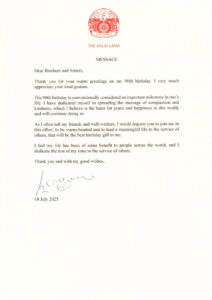 THE DALAI LAMA
MESSAGE
Dear Brothers and Sisters,
Thank you for your warm greetings on my 90th birthday. I very much
appreciate your kind gesture.
The 90th birthday is conventionally considered an important milestone in one's
life. I have dedicated myself to spreading the message of compassion and
kindness, which I believe is the basis for peace and happiness in this world,
and will continue doing so.
As I often tell my friends and well-wishers, I would request you to join me in
this effort, to be warm-hearted and to lead a meaningful life in the service of
others, that will be the best birthday gift to me.
I feel my life has been of some benefit to people across the world, and I
dedicate the rest of my time to the service of others.
Thank you and with my good wishes,
10 July 2025